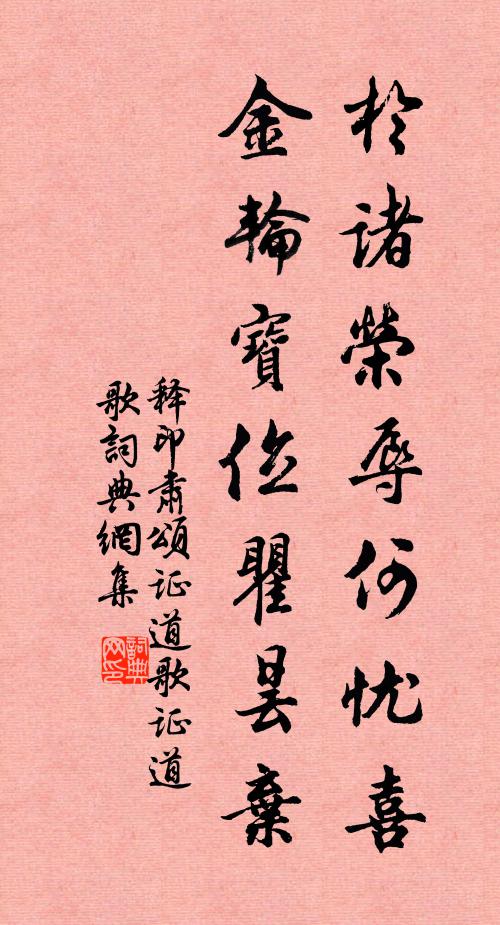 於諸榮辱何忧喜
金輪寶位瞿曇棄
释印肃頌证道歌证道
歌詞典網集
詞典网印